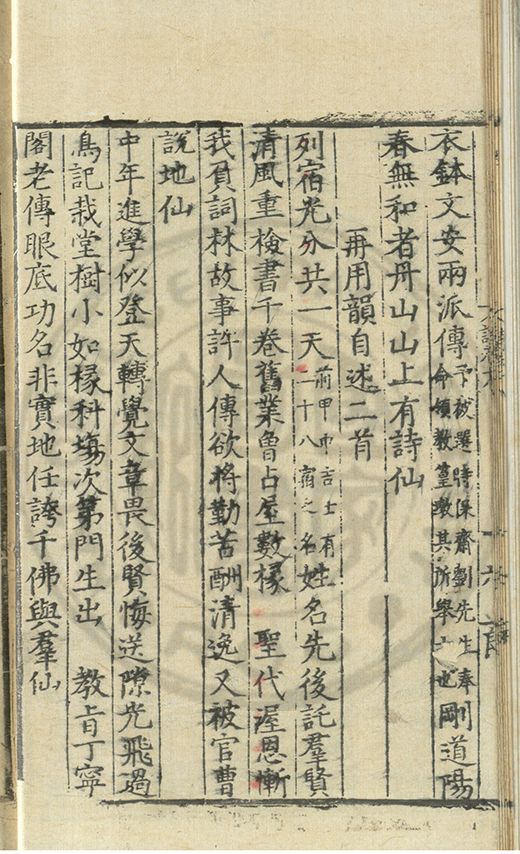 衣鉢文安兩派傳予被選時保齋劉先生奉命領教篁墩其所舉士也剛道陽
春無和者丹山山上有詩仙
再用韻自述二首
列宿光分共一天前甲申吉士有二十八宿之名姓名先後託羣賢
清風重檢書千卷舊業魯占屋數椽 聖代渥恩慚
我負詞林故事許人傳欲將勤苦酬清逸又被官曹
說地仙
中年進學似登天轉覺文章畏後賢悔送隙光飛過
鳥記栽堂樹小如椽科場次第門生出 教旨丁寧
閣老傳眼底功名非實地任誇千佛與羣仙